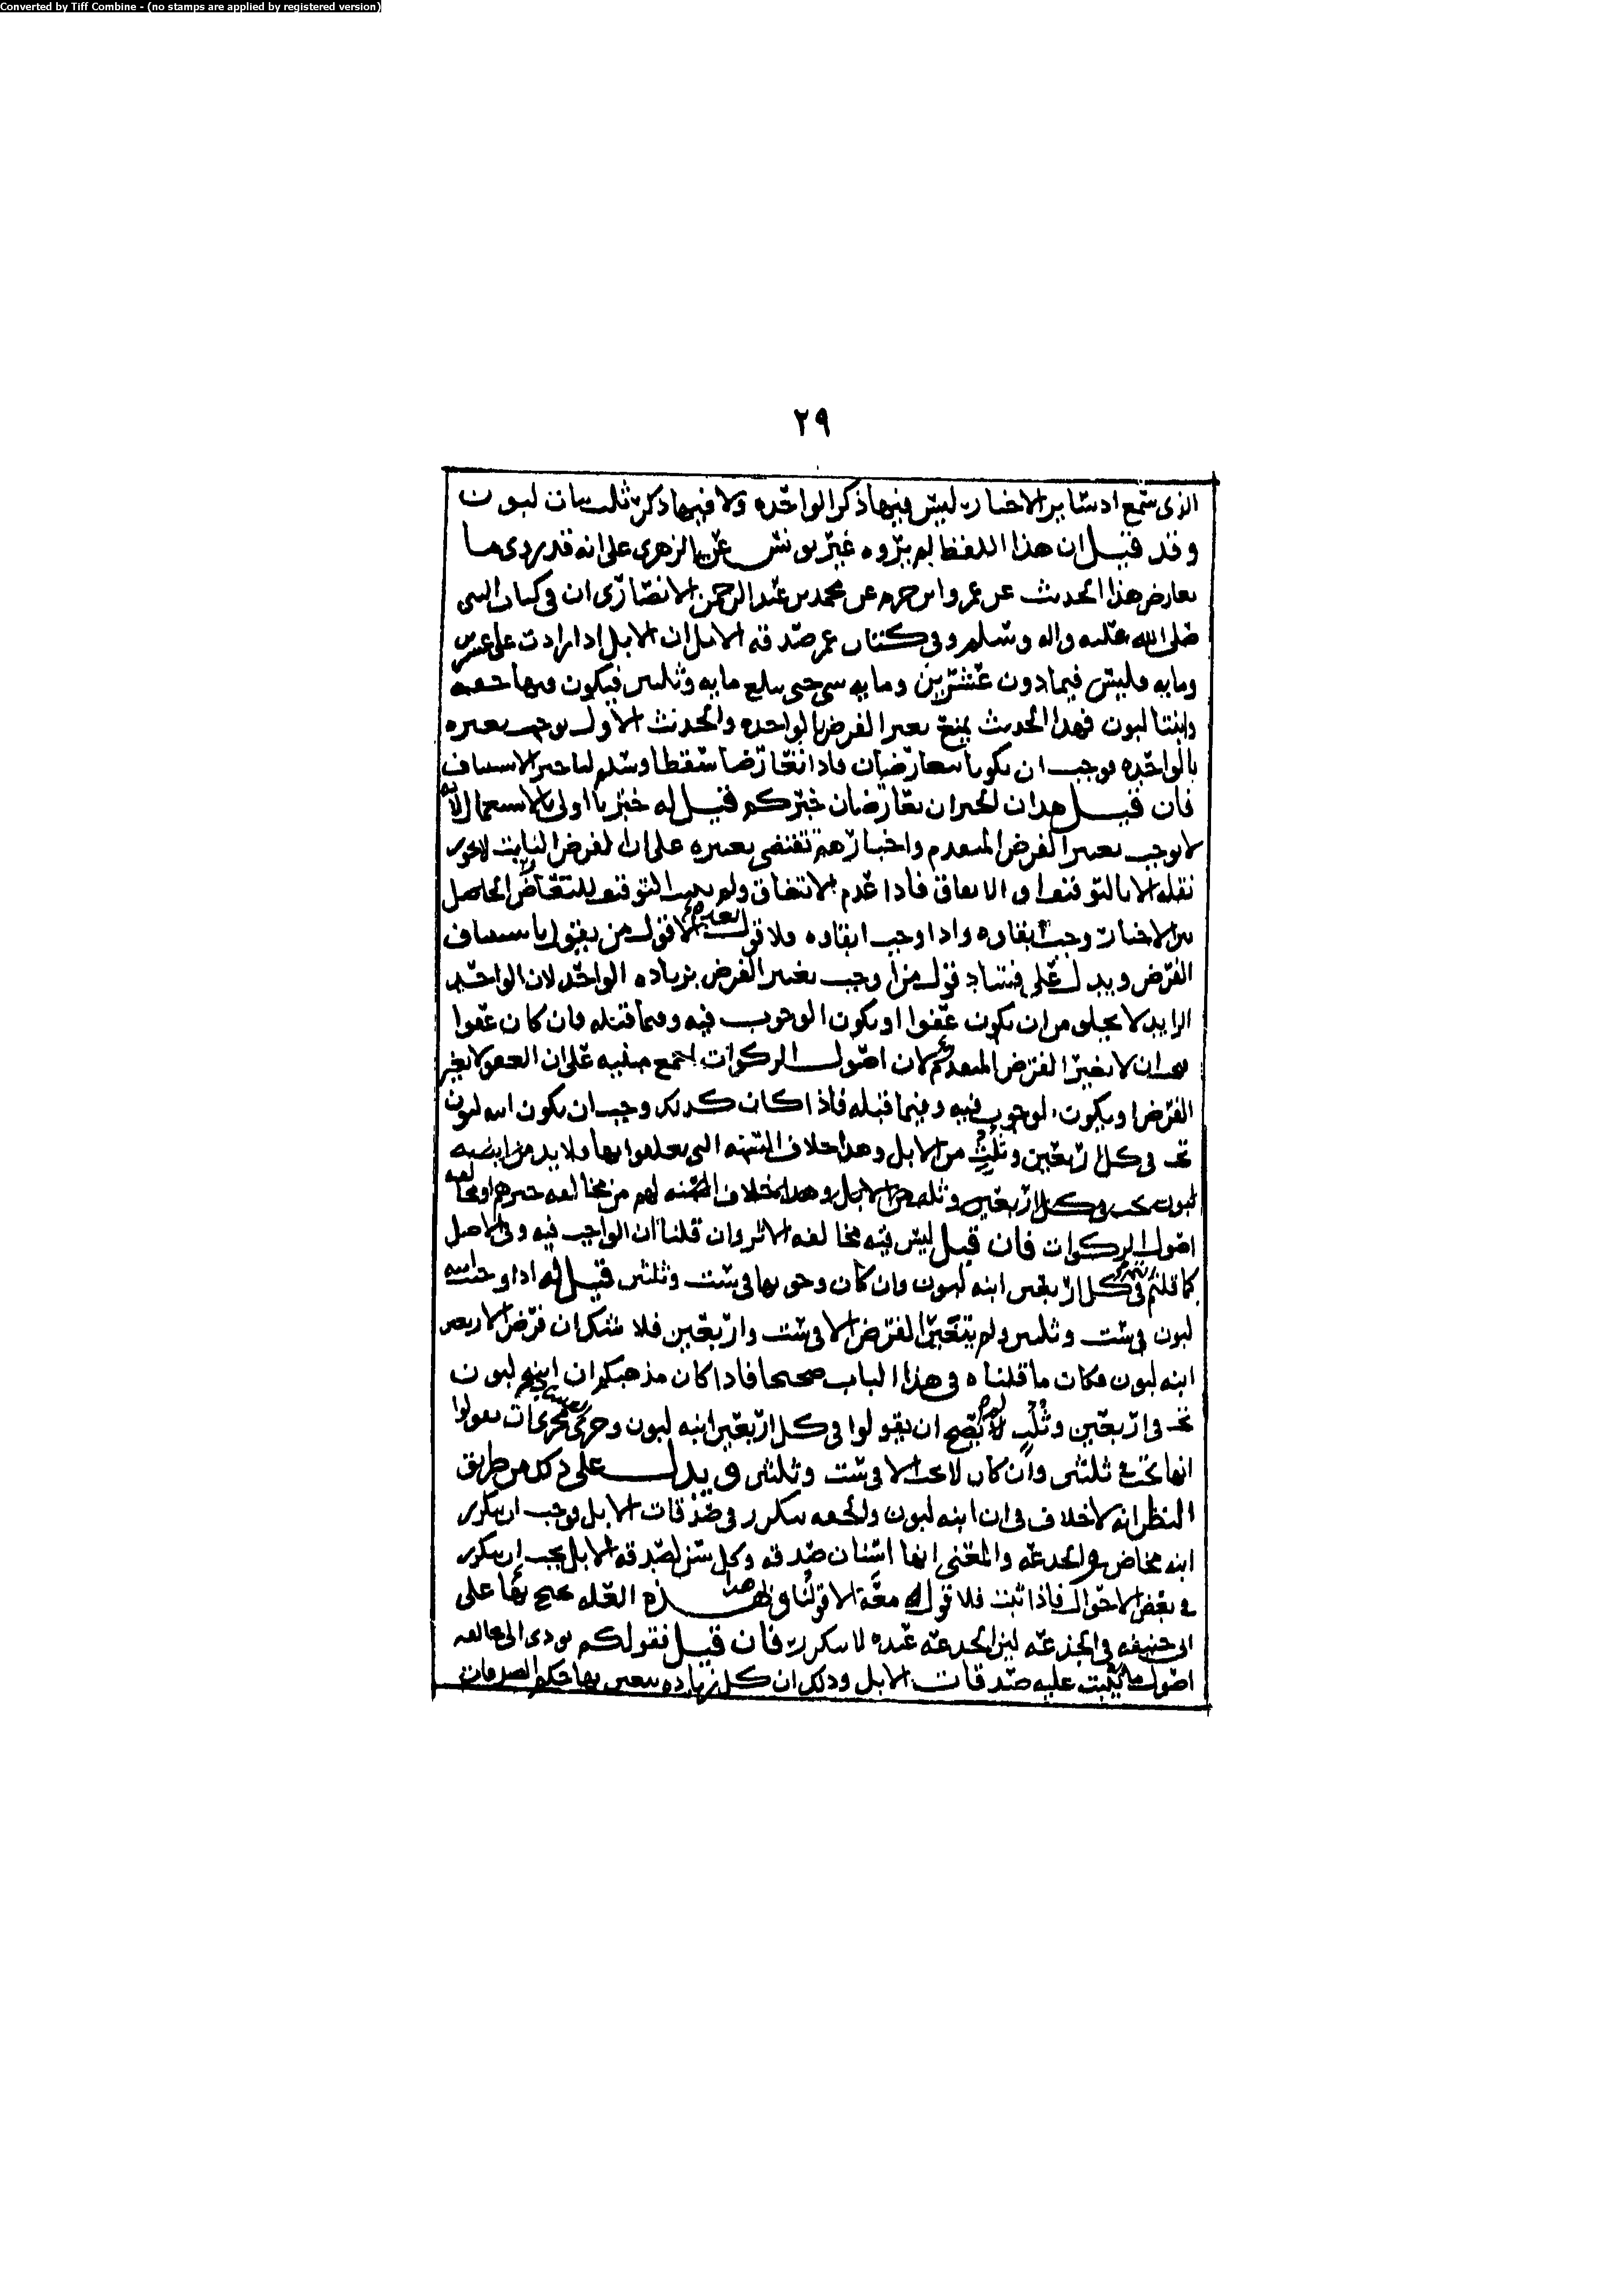 Converted by Tiff Combine - (no stamps are applied by registered version)
٢٩
الذي سمع اد سائر الاخبار ليس فيها ذكر الواحده ولا فيها ذكر ثلث بنات لبون
وقد قيل ان هذا اللفظ لم يروه غير يونس عن الزهري على انه قد روي ما
يعارض هذا الحديث عن عمرو ابن حزم عن محمد بن عبد الرحمن الانصاري ان في كتاب النبي
صلى الله عليه واله وسلم وفي كتاب عمر صدقه الابل ان الابل اذا زادت على عشرين
ومايه فليس فيما دون عشرين ومايه شي حتى يبلغ مايه وثلثين فيكون فيها حقه
وابنتا لبون فهذا الحديث يمنع تغير الفرض بالواحده والحديث الاول يوجب تغييره
بالواحده فوجب ان يكونا متعارضان فاذا تعارضا سقطا وسلم لنا خبر الاستيناف
فان قيل هذان الخبران يعارضان خبركم قيل له خبرنا اولى بالاستعمال لانه
لا يوجب تغير الفرض المتقدم واخبارهم تقتضي تغييره على ان الفرض الثابت لا يجوز
نقله الا بالتوقيف او الاتفاق فاذا عدم الاتفاق ولم يثبت التوقيف للتعارض الحاصل
بين الاخبار وجب ابقاوه واذا وجب ابقاوه فلا قول بعده الا قول من يقول باستيناف
الفرض ويدل على فساد قول من اوجب تغير الفرض بزياده الواحد لان الواحد
الزايد لا يخلو من ان يكون عفوا او يكون الوجوب فيه وفيما قبله فان كان عفوا
فيجب ان لا يغير الفرض المتقدم لان اصول الزكوات اجمع مبنيه على ان العفو لا يغير
الفرض او يكون الوجوب فيه وفيما قبله فاذا كان كذلك وجب ان يكون ابنه لبون
تجب في كل اربعين وثلث من الابل وهذا خلاف السنه التي تعلقوا بها ولا بد من ابنه
لبون تجب في كل اربعين وثلث من الابل وهذا خلاف السنه لهم من مخالفه خبرهم او مخالفه
اصول الزكوات فان قيل ليس فيه مخالفه الاثر وان قلنا ان الواجب فيه وفي الاصل
كما قلتم في كل اربعين ابنه لبون وان كان وجوبها في ست وثلثين قيل له اذا وجبت ابنه
لبون في ست وثلثين ولم يتغير الفرض الا في ست واربعين فلا شك ان فرض الاربعين
ابنه لبون فكان ما قلناه في هذا الباب صحيحا فاذا كان مذهبكم ان ابنه لبون
تجب في اربعين وثلث لم يصح ان يقولوا في كل اربعين ابنه لبون وجرى مجرى ان يقولوا
انها تجب في ثلثين وان كان لا يجب الا في ست وثلثين ويدل على ذلك من طريق
النظر انه لا خلاف في ان ابنه لبون والحقه يتكرر في صدقات الابل فوجب ان يتكرر
ابنه مخاض والجذعه والمعنى انها اسنان صدقه وكل سن لصدقه الابل يجب ان يتكرر
في بعض الاحوال فاذا ثبت فلا قول معه الا قولنا وهذه العله يحتج بها على
ابي حنيفه في الجذعه لان الجذعه عنده لا يتكرر فان قيل فقولكم يودي الى مخالفه
اصول ما بنيت عليه صدقات الابل وذلك ان كل زياده يتغير بها حكم الصدقات